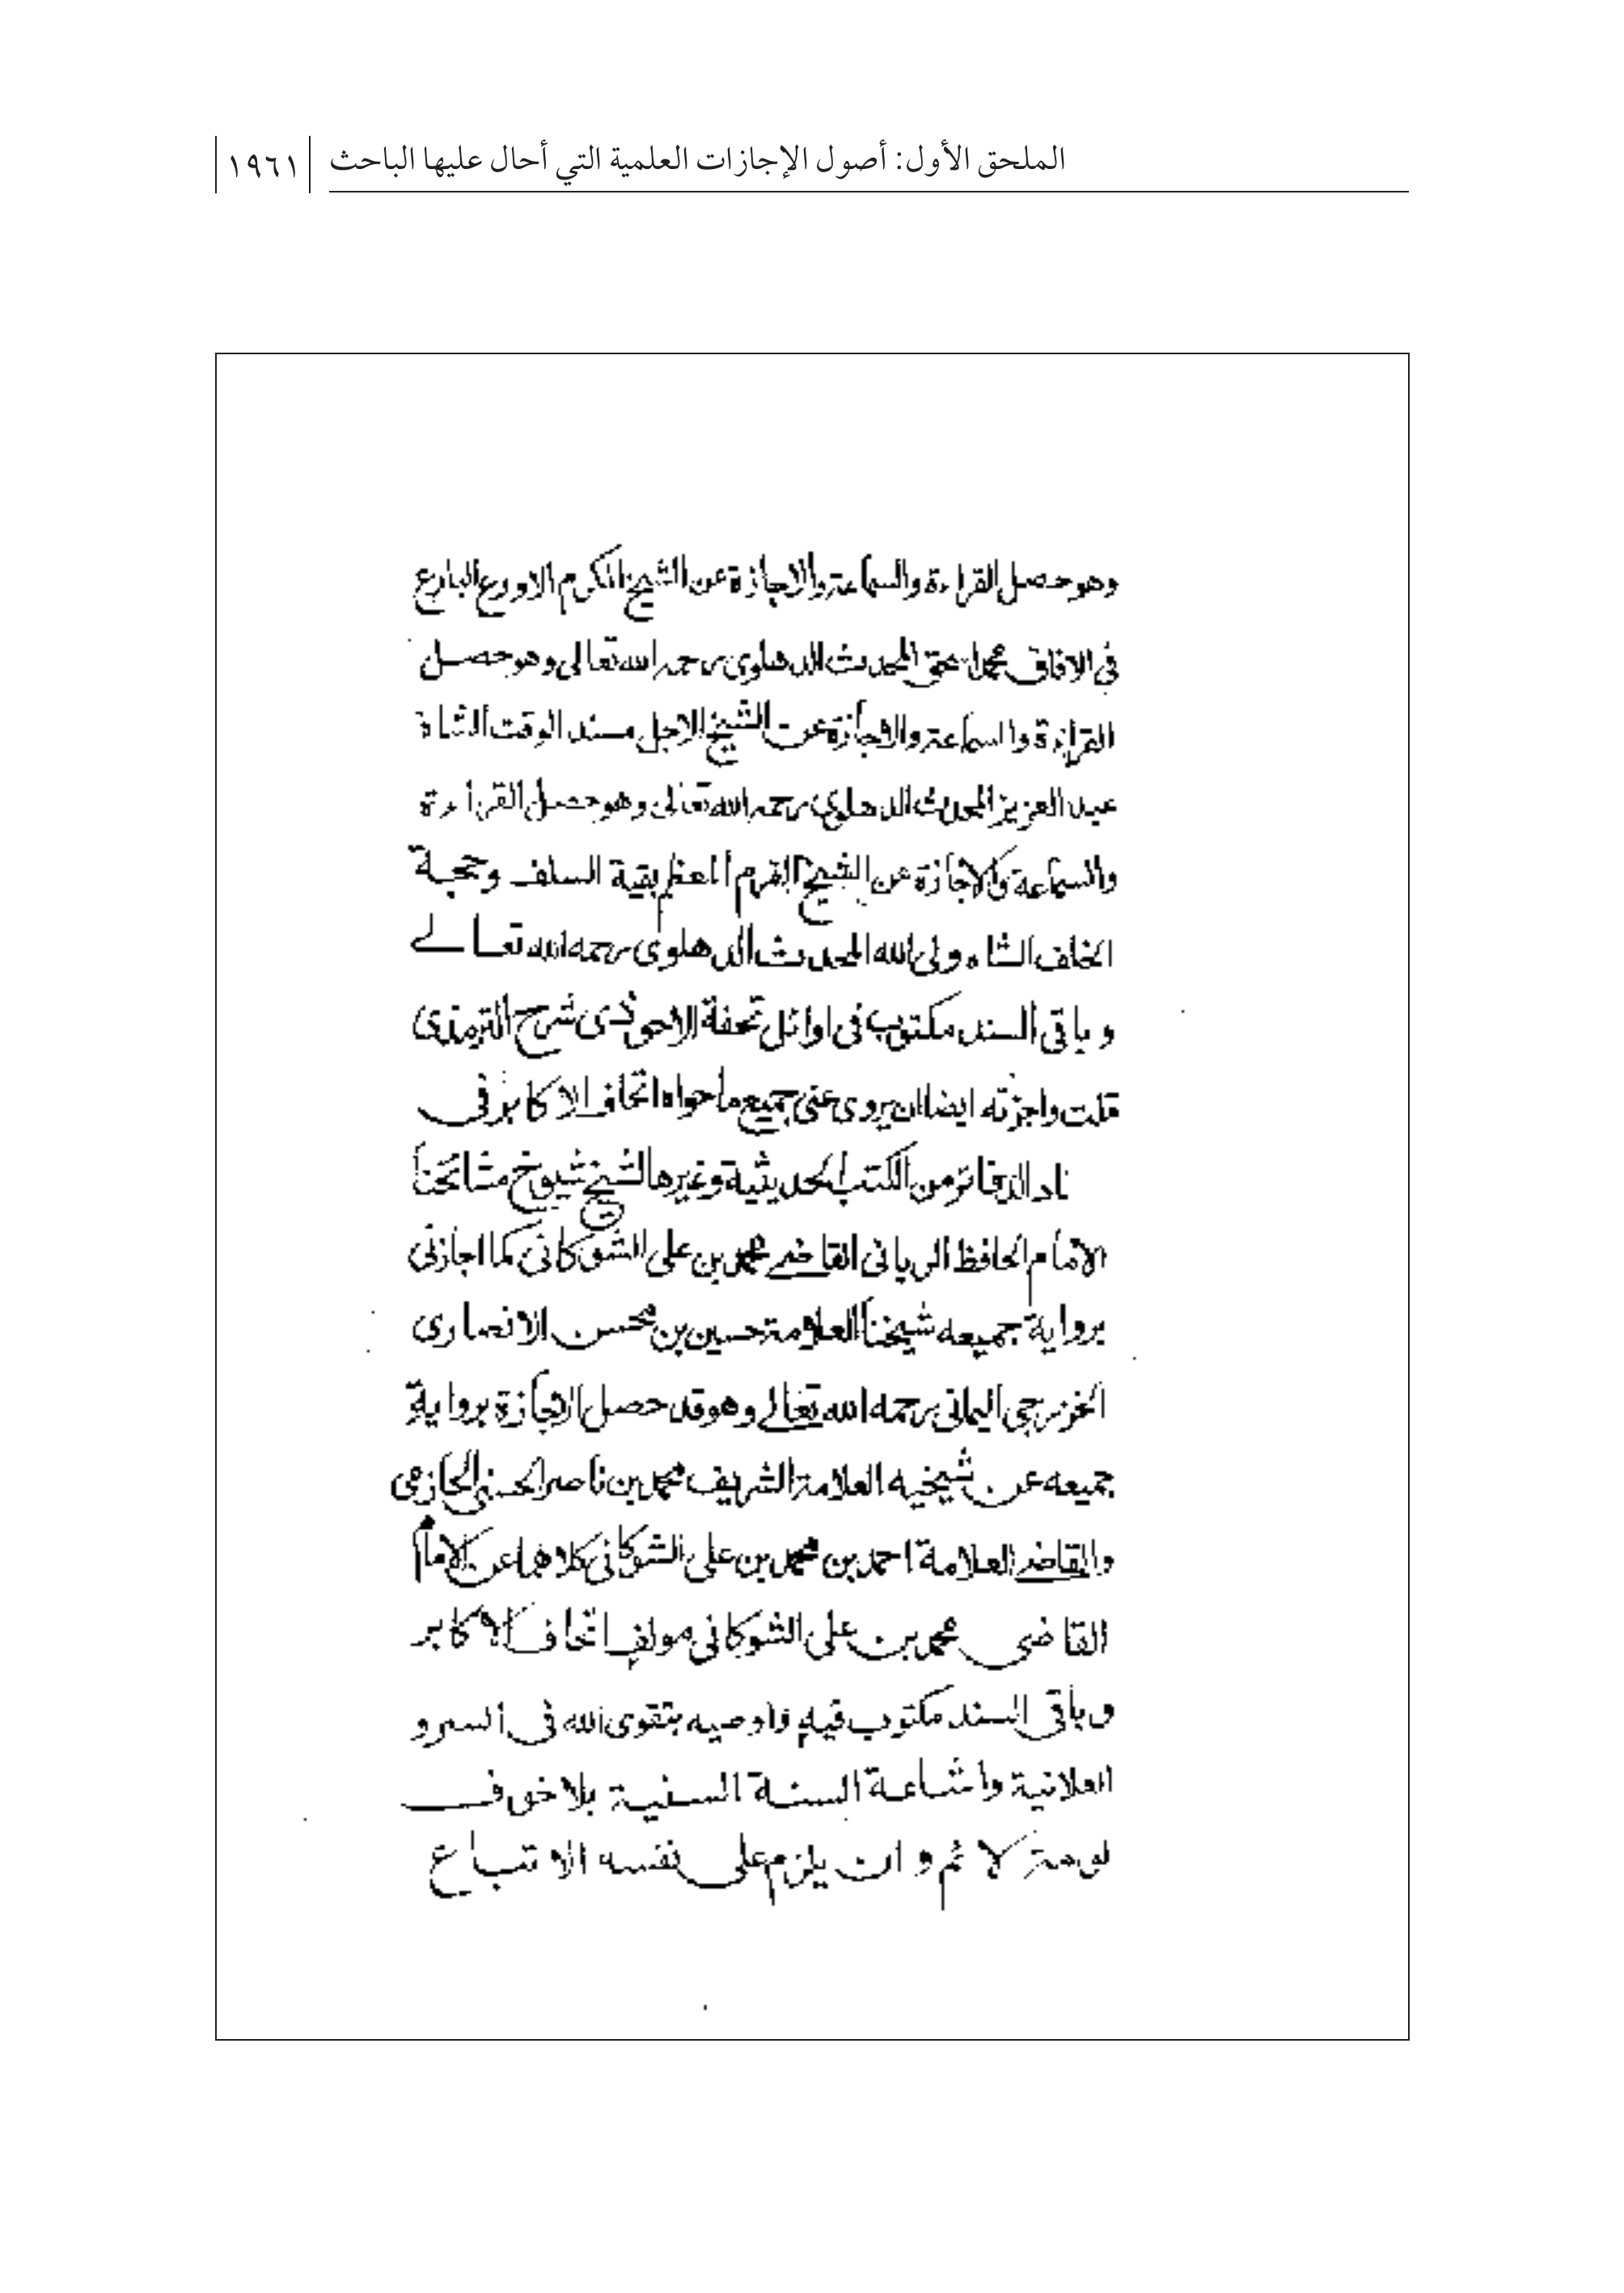 الملحق الأول: أصول الإجازات العلمية التي أحال عليها الباحث
١٩٦١
وهو حصل القراءة والسماعة والاجازة عن الشيخ المكرم الاورع البارع
فى الافاق محمد اسحق المحدث الدهلوى رحمه الله تعالى وهو حصل
القراءة والسماعة والاجازة عن الشيخ الاجل مسند الوقت الشاه
عبد العزيز المحدث الدهلوى رحمه الله تعالى وهو حصل القراءة
والسماعة والاجازة عن الشيخ القرم المعظم بقية السلف وحجة
الخلف الشاه ولى الله المحدث الدهلوى رحمه الله تعالے
و باقى السند مكتوب فى اوائل تحفة الاحوذى شرح الترمذى
قلت واجزته ايضا ان يروى عنى جميع ما حواه اتحاف الاكابر فى
ناد الدفاتر من الكتب الحديثية وغيرها لشيخ شيوخ مشائخنا
الامام الحافظ الربانى القاضے محمد بن على الشوكانى كما اجازنى
برواية جميعه شيخنا العلامة حسين بن محسن الانصارى
الخزرجى اليمانى رحمه الله تعالے وهو قد حصل الاجازة برواية
جميعه عن شيخيه العلامة الشريف محمد بن ناصر الحسنى الحازمى
والقاضے العلامة احمد بن محمد بن على الشوكانى كلاهما عن الامام
القاضى محمد بن على الشوكانى مولف اتحاف الاكابر
و باقى السند مكتوب فيه واوصيه بتقوى الله فى السر و
العلانية واشاعة السنة السنية بلا خوف
لومة لائم و ان يلزم على نفسه الاتباع